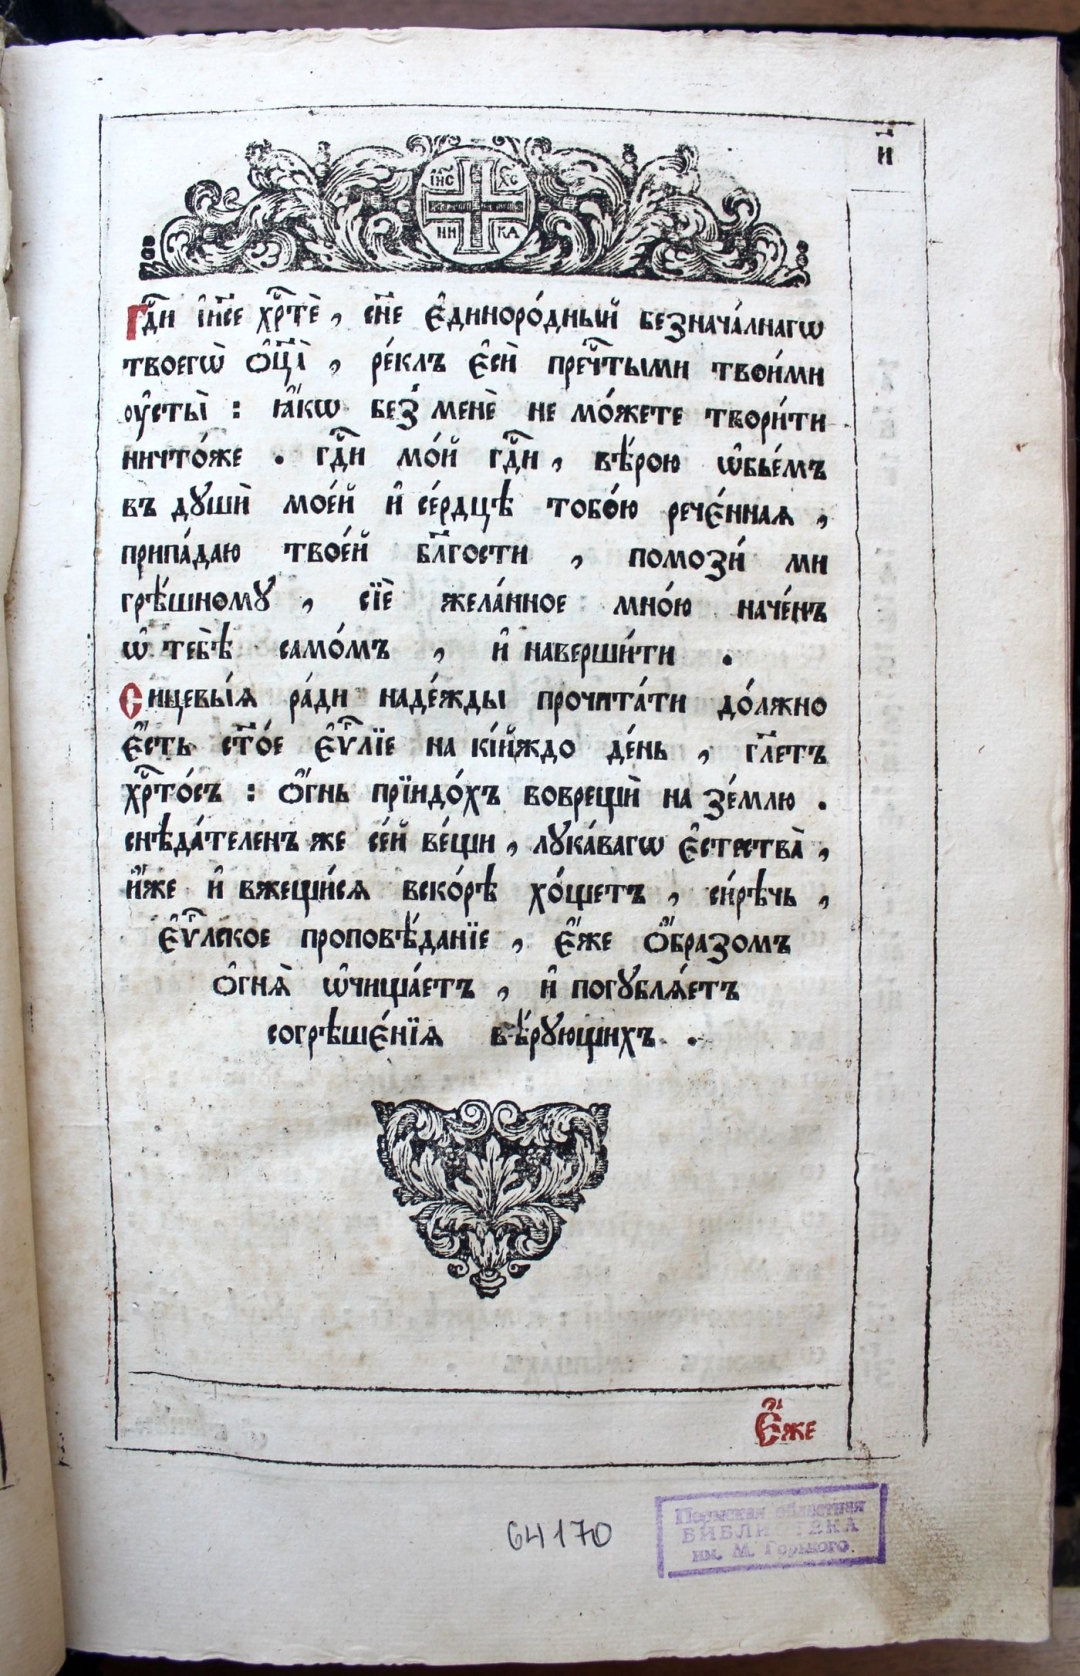 и҃
І҆И҃С Х҃С
НИ КА
Гдⷭ҇и і҆и҃се хрⷭ҇тѐ , сн҃е є҆диноро́дный безнача́лнагѡ
твоегѡ̀ ѻ҆ц҃а̀ , ре́клъ є҆сѝ пречⷭ҇тыми твои́ми
ᲂу҆сты̀ : ꙗ҆́кѡ без̾ менѐ не мо́жете твори́ти
ничто́же . гдⷭ҇и мо́й гдⷭ҇и , вѣ́рою ѡ҆бье́мъ
въ дꙋшѝ мое́й и҆ се́рдцѣ тобо́ю рече́нная ,
припа́даю твое́й бл҃гости , помози́ ми
грѣ́шномꙋ , сїѐ жела́нное мно́ю наче́нъ
ѡ҆ тебѣ̀ само́мъ , и҆ наверши́ти .
Сицевы́ѧ ра́ди наде́жды прочита́ти до́лжно
є҆́сть ст҃о́е є҆ѵⷢ҇лїе на кі́йждо де́нь , гл҃етъ
хрⷭ҇то́съ : ѻ҆́гнь прїидо́хъ воврещѝ на зе́млю .
снѣда́теленъ же се́й ве́щи , лꙋка́вагѡ є҆стества̀ ,
и҆́же и҆ вжещи́сѧ вско́рѣ хо́щетъ , си́рѣчь ,
є҆ѵⷢ҇лское проповѣ́данїе , є҆́же ѻ҆́бразомъ
ѻ҆гнѧ̀ ѡ҆чища́етъ , и҆ погꙋблѧ́етъ
согрѣше́нїѧ вѣ́рꙋющихъ .
Є҆́же
64170
Пермская областная
БИБЛИОТЕКА
им. М. Горького.